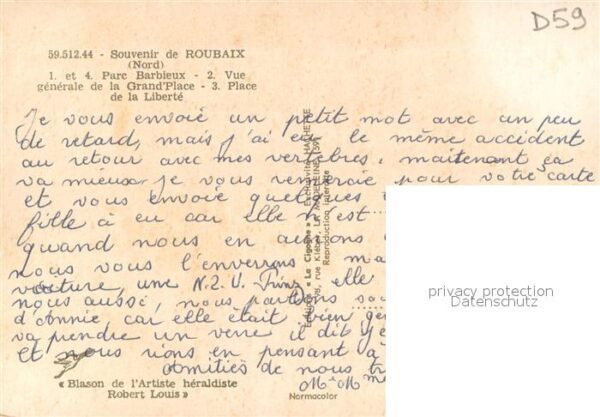 D59
59.512.44 - Souvenir de ROUBAIX
(Nord)
1. et 4. Parc Barbieux - 2. Vue
générale de la Grand'Place - 3. Place
de la Liberté
Je vous envoie un petit mot avec un peu
de retard, mais j'ai eu le même accident
au retour avec mes vertèbres. maintenant ça
va mieux. Je vous remercie pour votre carte
et vous envoie quelques
fille à eu car elle n'est
quand nous en aurons
nous vous l'enverrons
voiture, une N.S.U. Prinz elle
nous aussi, nous parlons
d'Annie car elle était bien
va prendre un verre il dit
et nous rions en pensant à
Amitiés de nous
M. M me
Editions « Le Cigogne »
rue Kléber, LA MADELEINE
Reproduction interdite
privacy protection
Datenschutz
« Blason de l'Artiste héraldiste
Robert Louis »
Normacolor